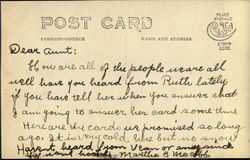 POST CARD
CORRESPONDENCE
NAME AND ADDRESS
PLACE
POSTAGE
STAMP
HERE
Dear Aunt:
How are all of the people we are all
well have you heard from Ruth lately
if you have tell her when you answer that
I am going to answer her card some time
Here are the cards we promised so long
ago. It is very cold here but no snow
Havent heard from or any since
went home. Martha B